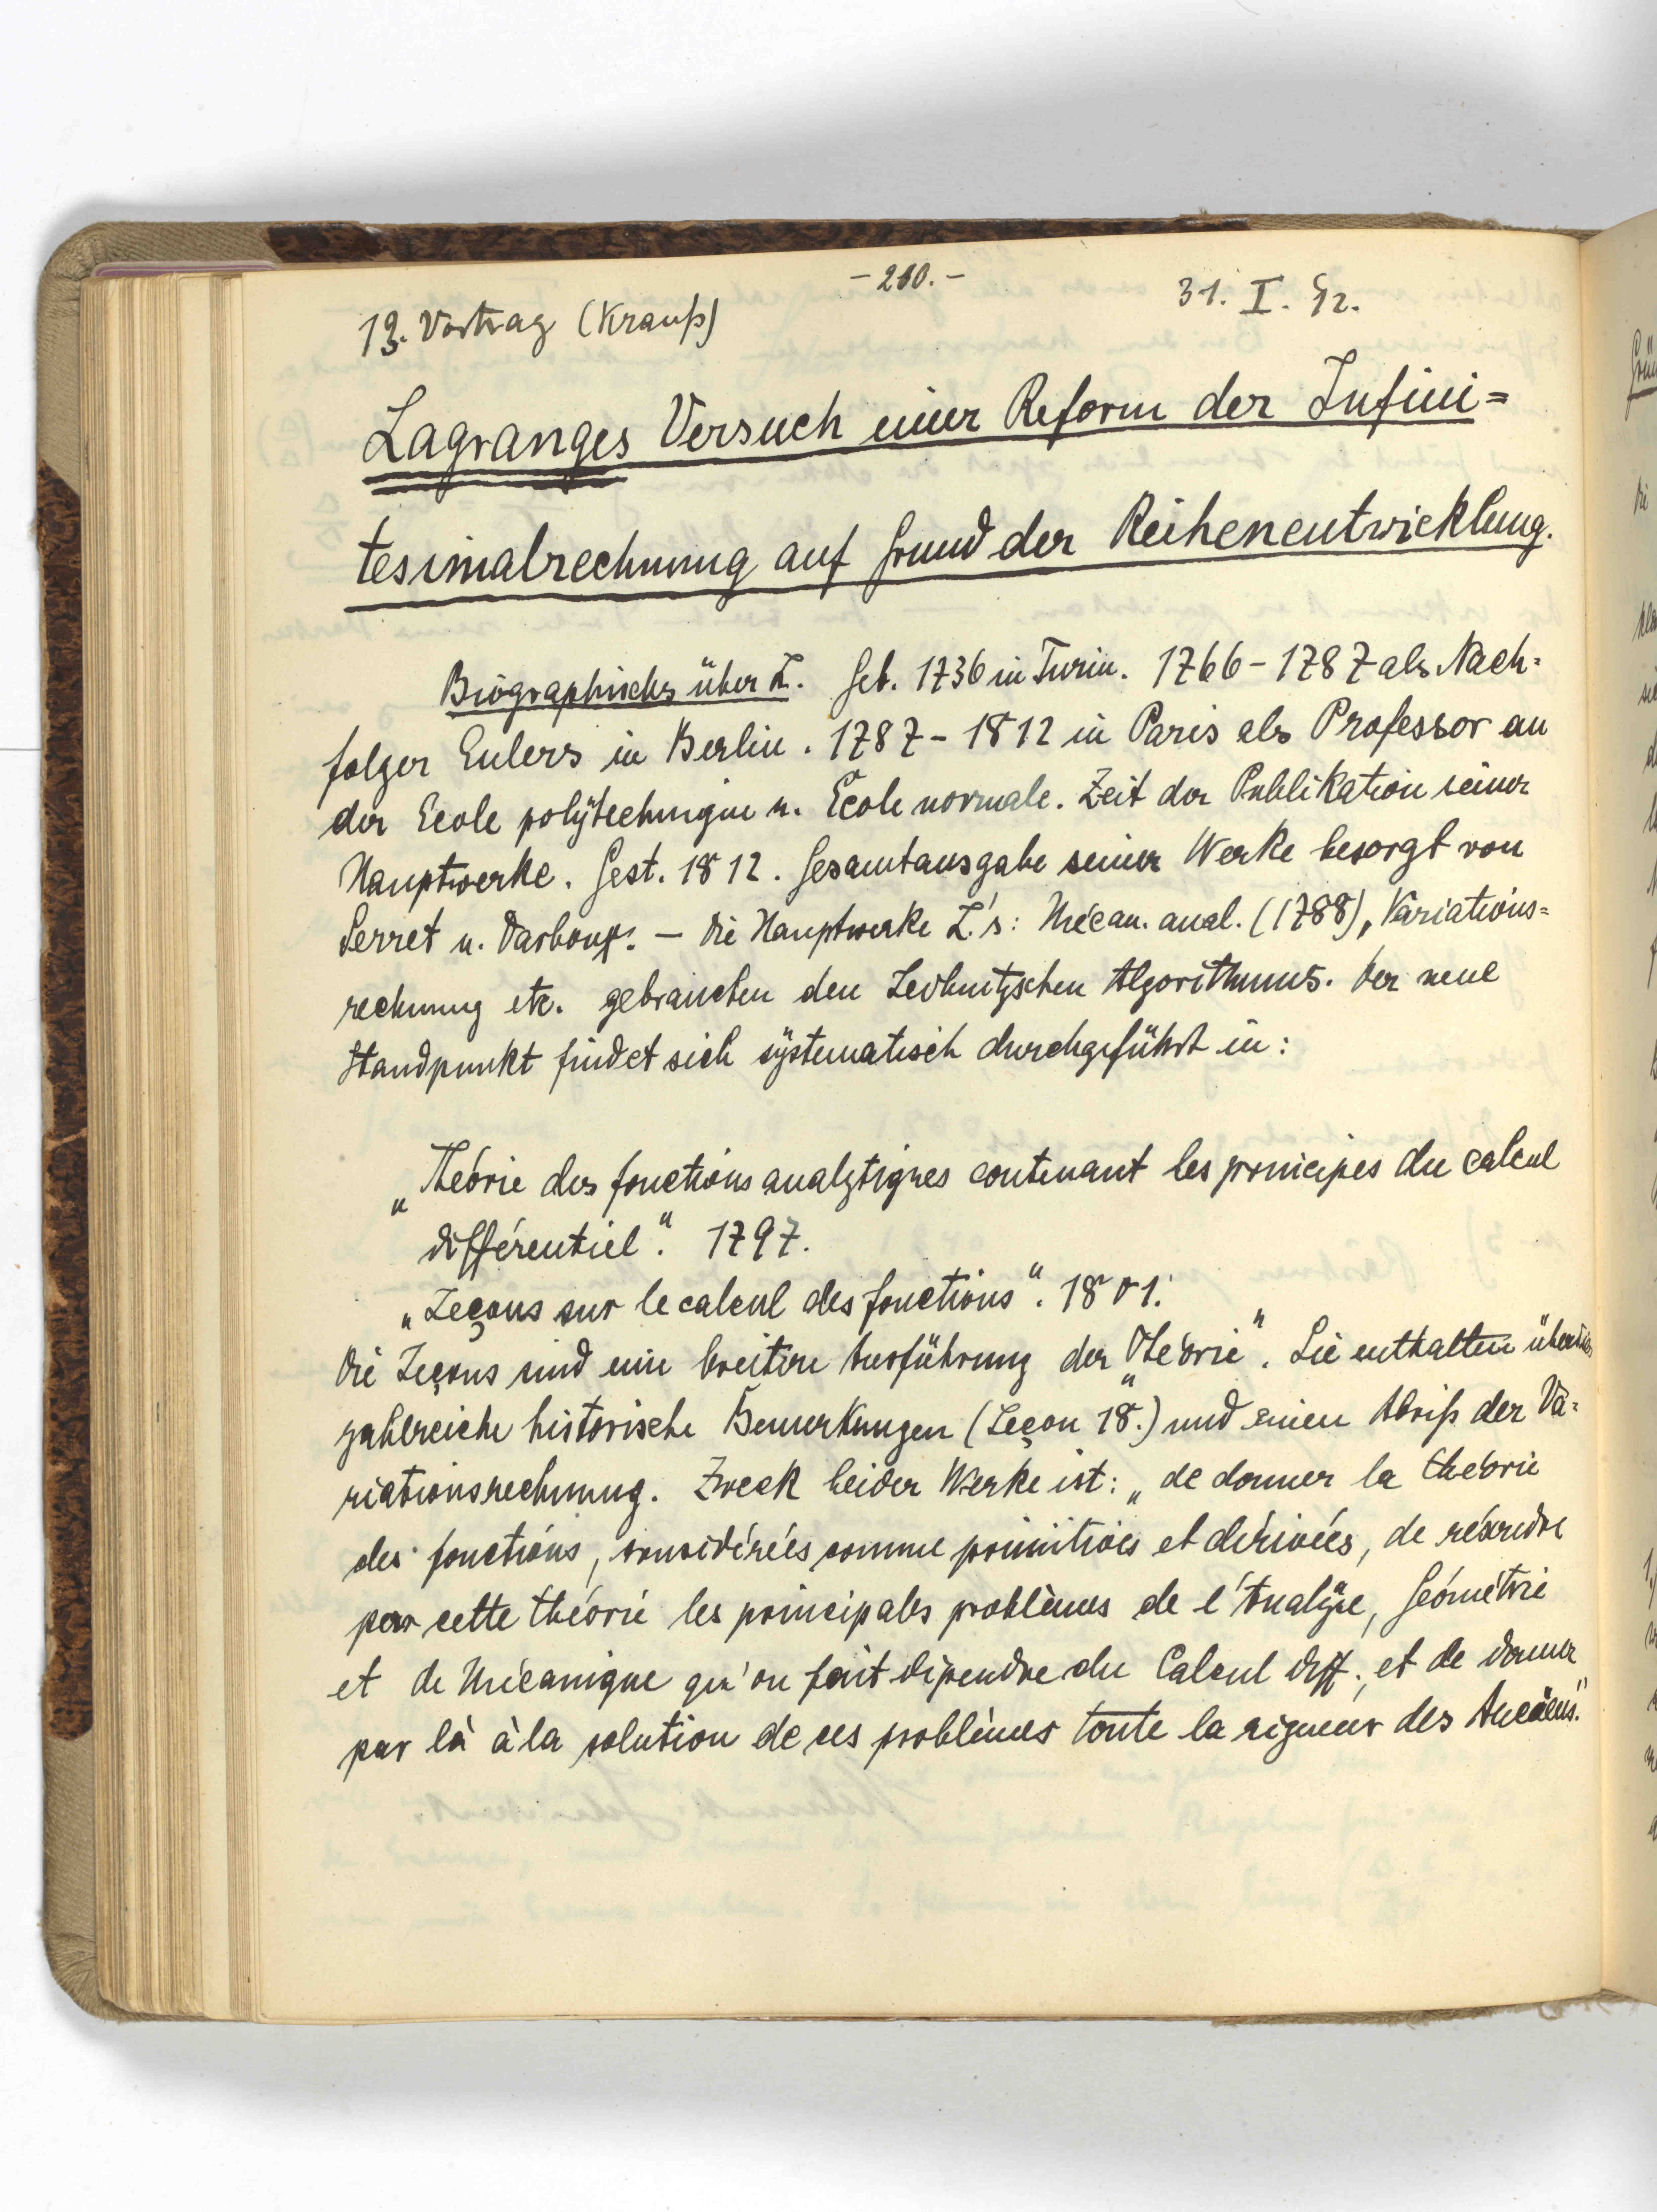 - 210. -
13. Vortrag (Krauß)
31. I. 12.
Lagranges Versuch einer Reform der Infini=
tesimalrechnung auf Grund der Reihenentwicklung.
Biographisches über L. Geb. 1736 in Turin. 1766 - 1787 als Nach=
folger Eulers in Berlin. 1787 - 1812 in Paris als Professor an
der École polytechnique u. École normale. Zeit der Publikation seiner
Hauptwerke. Gest. 1812. Gesamtausgabe seiner Werke besorgt von
Serret u. Darboux. — Die Hauptwerke L.'s: Mécan. anal. (1788), Variations=
rechnung etc. gebrauchen den Leibnitzschen Algorithmus. Der neue
Standpunkt findet sich systematisch durchgeführt in:
„Théorie des fonctions analytiques contenant les principes du calcul
différentiel“. 1797.
„Leçons sur le calcul des fonctions“. 1801.
Die Leçons sind eine breitere Ausführung der „Théorie“. Sie enthalten überdies
zahlreiche historische Bemerkungen (Leçon 18.) und einen Abriß der Va=
riationsrechnung. Zweck beider Werke ist: „de donner la théorie
des fonctions, considérées comme primitives et dérivées, de résoudre
par cette théorie les principales problèmes de l'Analyse, Géométrie
et de Mécanique qu'on fait dépendre du Calcul diff., et de donner
par là à la solution de ces problèmes toute la rigueur des Anciens.“